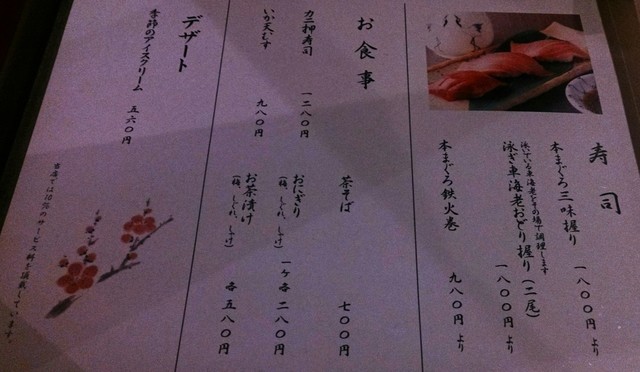 寿司
本まぐろ三味握り 一八〇〇円より
泳いでいる車海老をその場で調理します
泳ぎ車海老おどり握り(二尾) 一八〇〇円より
本まぐろ鉄火巻 九八〇円より
お食事
カニ押寿司 一二八〇円
いか天むす 九八〇円
茶そば 七〇〇円
おにぎり
(梅、しぐれ、しゃけ) 一ケ各 二八〇円
お茶漬け
(梅、しぐれ、しゃけ) 各五八〇円
デザート
季節のアイスクリーム 五六〇円
当店では10%のサービス料を頂戴しています。